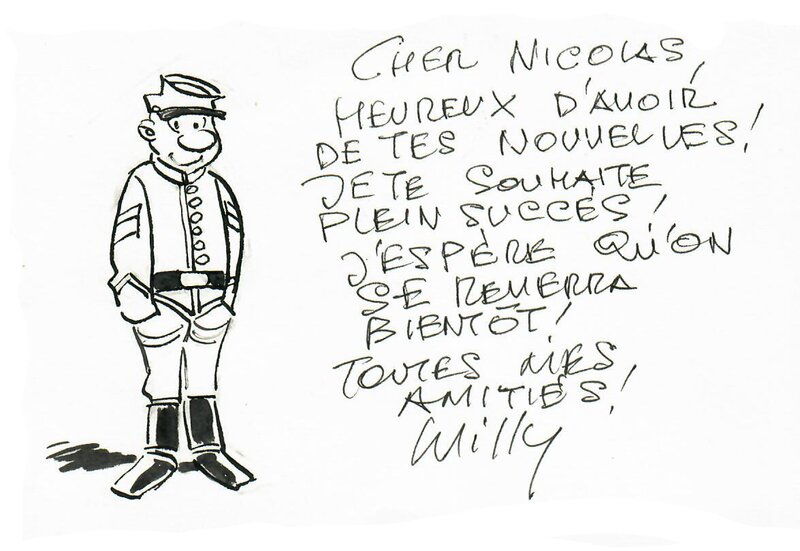 CHER NICOLAS,
HEUREUX D'AVOIR
DE TES NOUVELLES!
JE TE SOUHAITE
PLEIN SUCCÈS!
J'ESPÈRE QU'ON
SE REVERRA
BIENTÔT!
TOUTES MES
AMITIÉS!
Willy